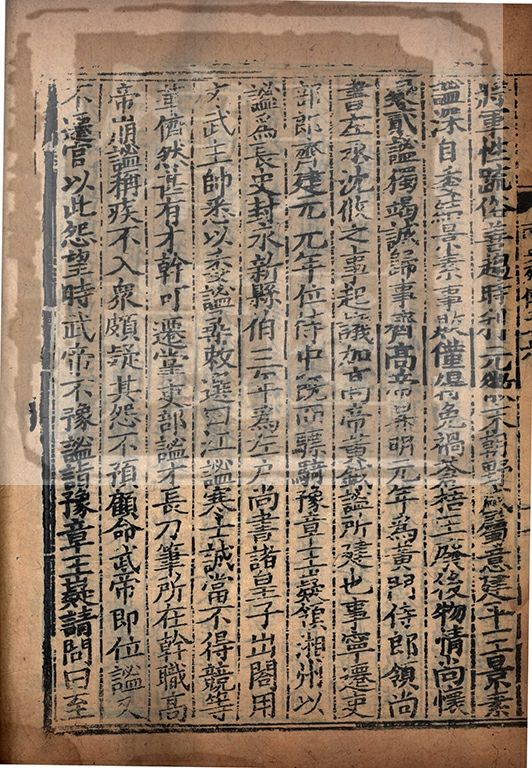 將軍性疏俗善趨時利元徽末朝野咸屬意建平王景素
謐深自委結景素事敗僅得免禍蒼梧王廢後物情尚懷
疑貳謐獨竭誠歸事齊高帝昇明元年爲黃門侍郎領尚
書左丞沈攸之事起議加高帝黃鉞謐所建也事寧遷吏
部郎齊建元元年位侍中既而驃騎豫章王嶷領湘州以
謐爲長史封永新縣伯三年爲左戶尚書諸皇子出閤用
文武主帥悉以委謐尋敕選曰江謐寒士誠當不得競等
華儕然甚有才幹可遷掌吏部謐才長刀筆所在幹職高
帝崩謐稱疾不入衆頗疑其怨不預顧命武帝即位謐又
不遷官以此怨望時武帝不豫謐詣豫章王嶷請問曰至